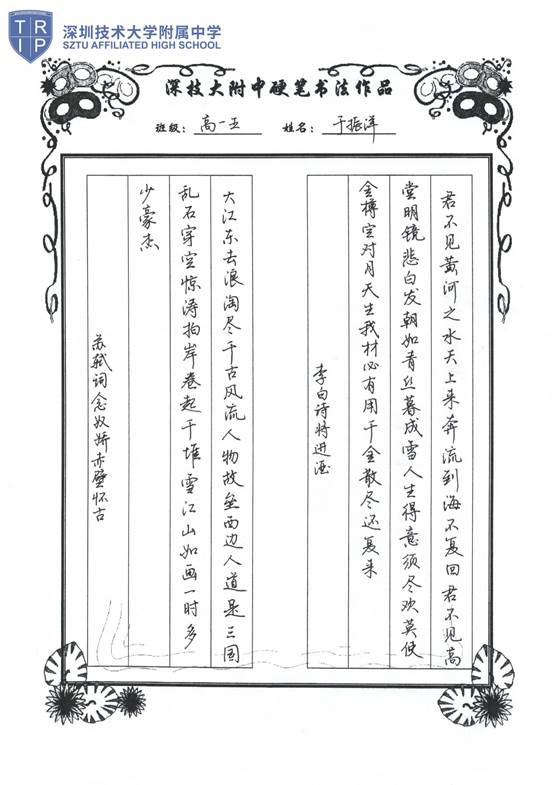 TRIP
深圳技术大学附属中学
SZTU AFFILIATED HIGH SCHOOL
深技大附中硬笔书法作品
班级：高一五 姓名：于振洋
君不见黄河之水天上来奔流到海不复回君不见高
堂明镜悲白发朝如青丝暮成雪人生得意须尽欢莫使
金樽空对月天生我材必有用千金散尽还复来
李白诗将进酒
大江东去浪淘尽千古风流人物故垒西边人道是三国
乱石穿空惊涛拍岸卷起千堆雪江山如画一时多
少豪杰
苏轼词念奴娇赤壁怀古